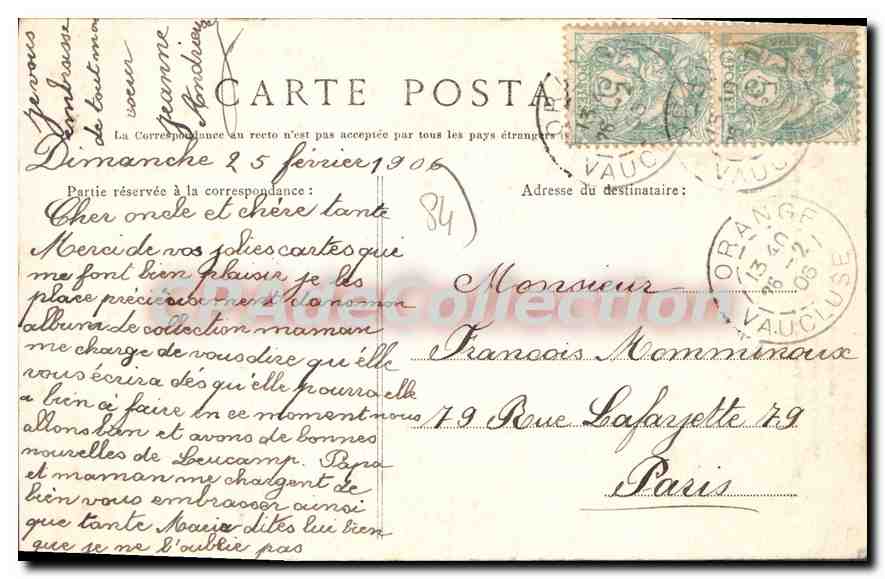 CARTE POSTA
La Correspondance au recto n'est pas acceptée par tous les pays étrangers
Dimanche 25 février 1906
Partie réservée à la correspondance :
Cher oncle et chère tante
Merci de vos jolies cartes que
me font bien plaisir je les
place précieusement dans mon
album de collection maman
me charge de vous dire qu'elle
vous écrira dès qu'elle pourra elle
a bien à faire in ce moment nous
allons bien et avons de bonnes
nouvelles de Leucamp. Papa
et maman me chargent de
bien vous embrasser ainsi
que tante Maria dites lui bien
que je ne l'oublie pas
je vous
embrasse
de tout mon
coeur
Jeanne
Andrieu
84
Adresse du destinataire :
Monsieur
François Momminoux
79 Rue Lafayette 79
Paris
ORANGE
13 40
26 - 2
06
VAUCLUSE
5c
5c
VAUCLUSE
VAUCLUSE
CPAdeCollection